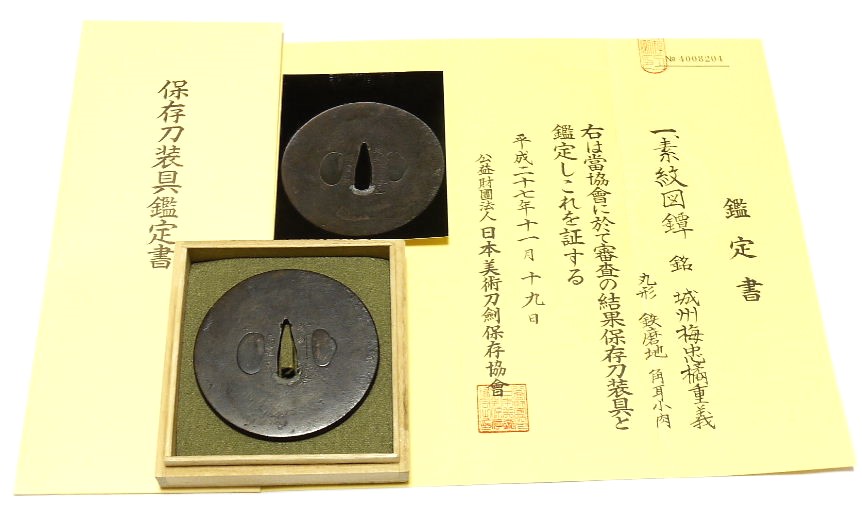 № 4008204
鑑定書
一、素紋図鐔 銘 城州梅忠橘重義
丸形 鉄磨地 角耳小肉
右は當協會に於て審査の結果保存刀装具と
鑑定しこれを証する
平成二十七年十一月十九日
公益財團法人日本美術刀劍保存協會
保存刀装具鑑定書